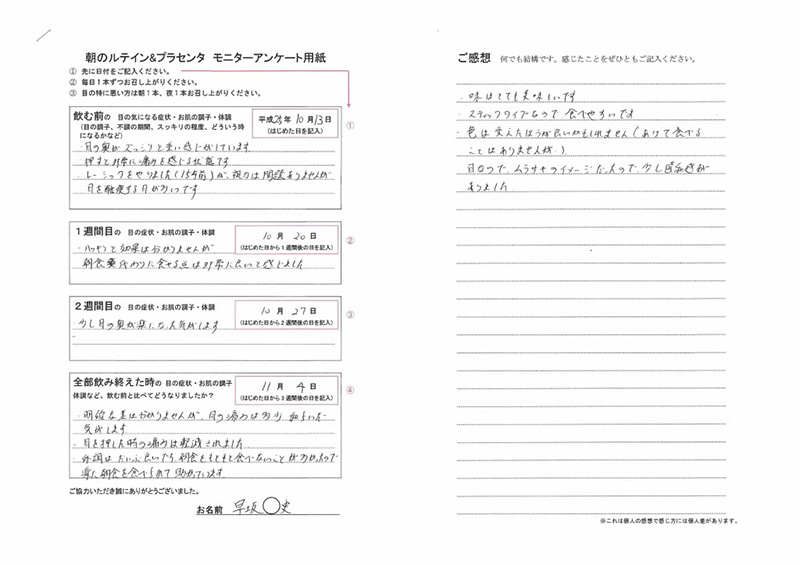 朝のルテイン&プラセンタ モニターアンケート用紙
① 先に日付をご記入ください。
② 毎日1本ずつお召し上がりください。
③ 目の特に悪い方は朝1本、夜1本お召し上がりください。
飲む前の 目の気になる症状・お肌の調子・体調
(目の調子、不調の期間、スッキリの程度、どういう時になるかなど)
平成28年 10月13日
(はじめた日を記入)
①
・目の奥がズッシリと重い感じがしています
・押すと非常に痛みを感じる状態です
・レーシックをやりました(15年前)が、視力は問題ありませんが
目を酷使する日が多いです
1週間目の 目の症状・お肌の調子・体調
10月 20日
(はじめた日から1週間後の日を記入)
②
・ハッキリと効果は分かりませんが
朝食代わりに食せる点は非常に良いと感じました
2週間目の 目の症状・お肌の調子・体調
10月 27日
(はじめた日から2週間後の日を記入)
③
少し目の奥が楽になった気がします
全部飲み終えた時の 目の症状・お肌の調子
体調など、飲む前と比べてどうなりましたか?
11月 4日
(はじめた日から3週間後の日を記入)
④
・明確な差は分かりませんが、目の痛みは多少和らいだ
気がします
・目を押した時の痛みは軽減されました
・体調はだいぶ良いです。朝食をもともと食べないことが多かったので
楽に朝食を食べられて助かっています
ご協力いただき誠にありがとうございました。
お名前 早坂○史
ご感想 何でも結構です。感じたことをぜひともご記入ください。
・味はとても美味しいです
・スティックタイプなので食べやすいです
・色は変えたほうが良いかもしれません(あけて食べる
ことはありませんが。)
目なので、ムラサキのイメージだったので、少し違和感が
ありました
※これは個人の感想で感じ方には個人差があります。